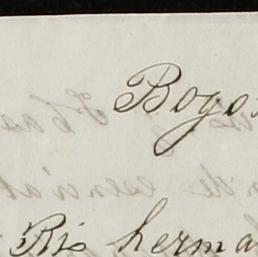 Bogo
Ris herma